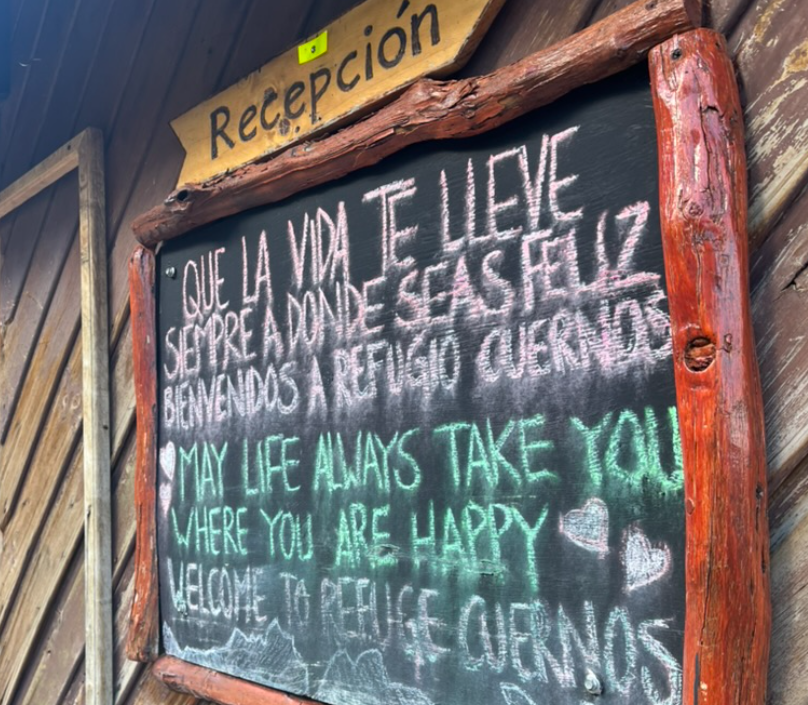 Recepción
QUE LA VIDA TE LLEVE
SIEMPRE A DONDE SEAS FELIZ
BIENVENIDOS A REFUGIO CUERNOS
MAY LIFE ALWAYS TAKE YOU
WHERE YOU ARE HAPPY
WELCOME TO REFUGE CUERNOS